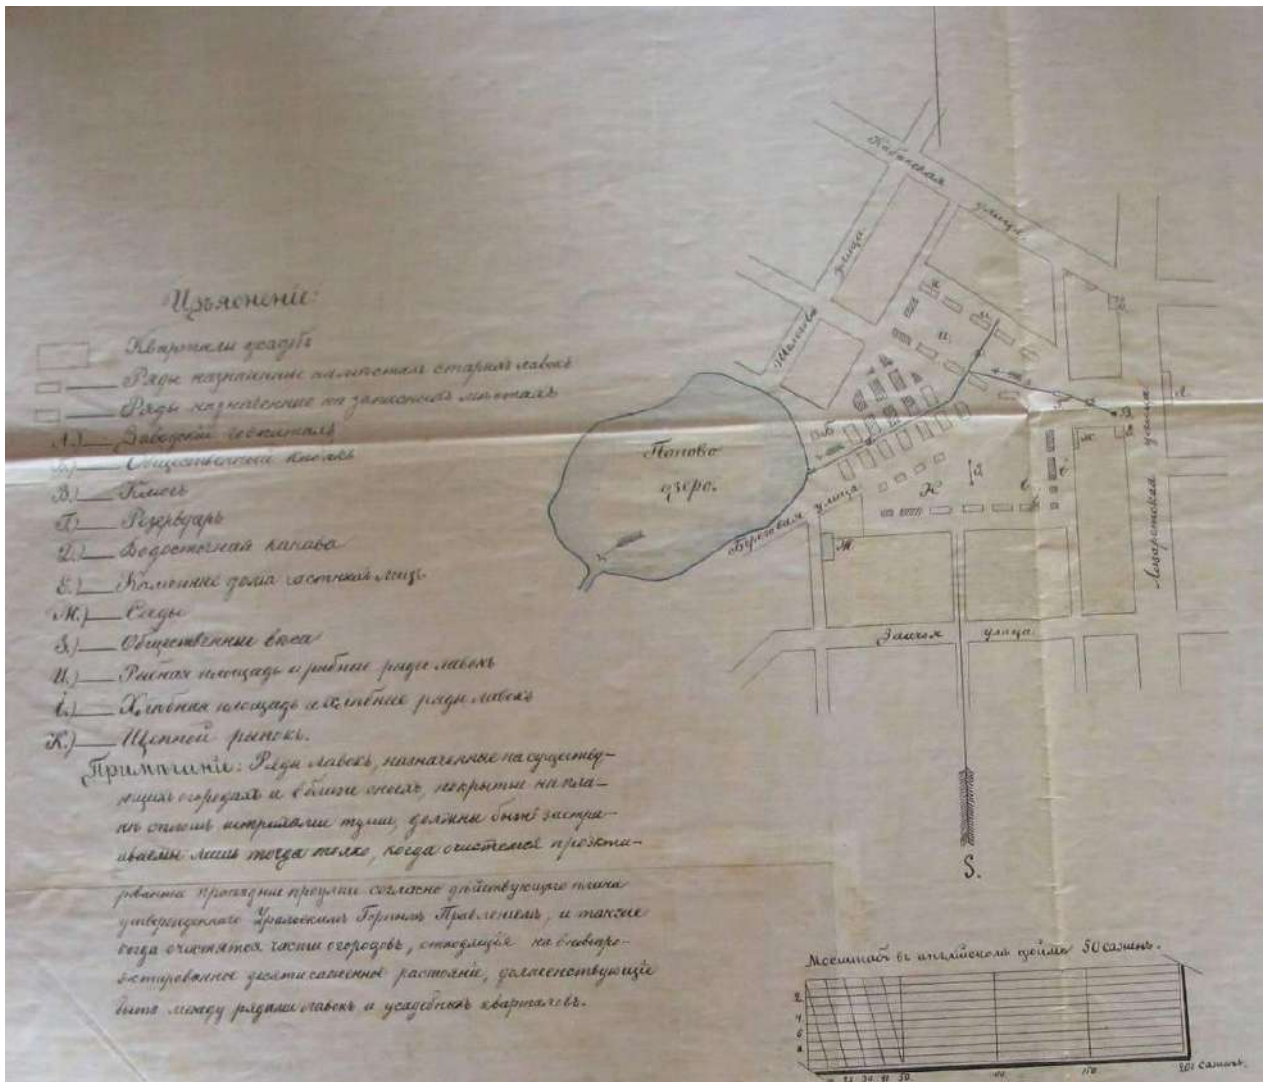 Изъясненіе:
Кварталы усадьбъ
Ряды назначенные на мѣстахъ старыхъ лавокъ
Ряды назначенные на запасныхъ мѣстахъ
А.) Заводскій госпиталь
Б.) Общественный
В.) Ключъ
Г.) Резервуаръ
Д.) Водосточная канава
Е.) Каменные дома частныхъ лицъ
Ж.) Сады
З.) Общественные вѣса
И.) Рыбная площадь и рыбные ряды лавокъ
І.) Хлѣбная площадь и хлѣбные ряды лавокъ
К.) Щепной рынокъ.
Примѣчаніе: Ряды лавокъ, назначенные на существу-
ющихъ огородахъ и вблизи оныхъ, покрытые на пла-
нѣ тушью, должны быть застра-
иваемы лишь тогда только, когда очистятся проэкти-
рованные проѣздные проулки согласно дѣйствующаго плана
утвержденнаго Уральскимъ Горнымъ Правленіемъ, и также
когда очистятся части огородовъ, отходящія на
десятисаженные растоянія, долженствующіе
быть между рядами лавокъ и усадебныхъ кварталовъ.
Кабанская улица
улица
Попово
озеро.
Береговая улица
Лазаретская улица
Заячья улица
И
К
Ж
S.
Масштабъ въ англійскомъ дюймѣ 50 сажень.
50. 100. 150. 200 сажень.